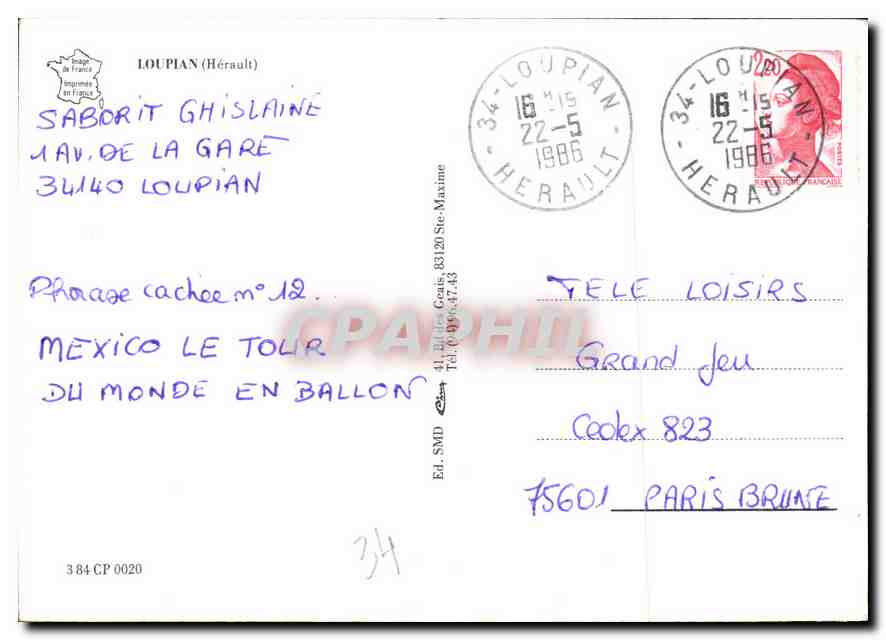 Image
de France
Imprimée
en France
LOUPIAN (Hérault)
SABORIT GHISLAINE
1 AV. DE LA GARE
34140 LOUPIAN
Phrase cachée n° 12.
MEXICO LE TOUR
DU MONDE EN BALLON
3 84 CP 0020
34
Ed. SMD
41, Bd des Geais, 83120 Ste-Maxime
Tél. (94) 96.47.43
CPAPHIL
34-LOUPIAN
16 H 15
22-5
1986
HERAULT
34-LOUPIAN
16 H 15
22-5
1986
HERAULT
2,20
POSTES
REPUBLIQUE FRANÇAISE
TELE LOISIRS
Grand Jeu
Cedex 823
75601 PARIS BRUNE